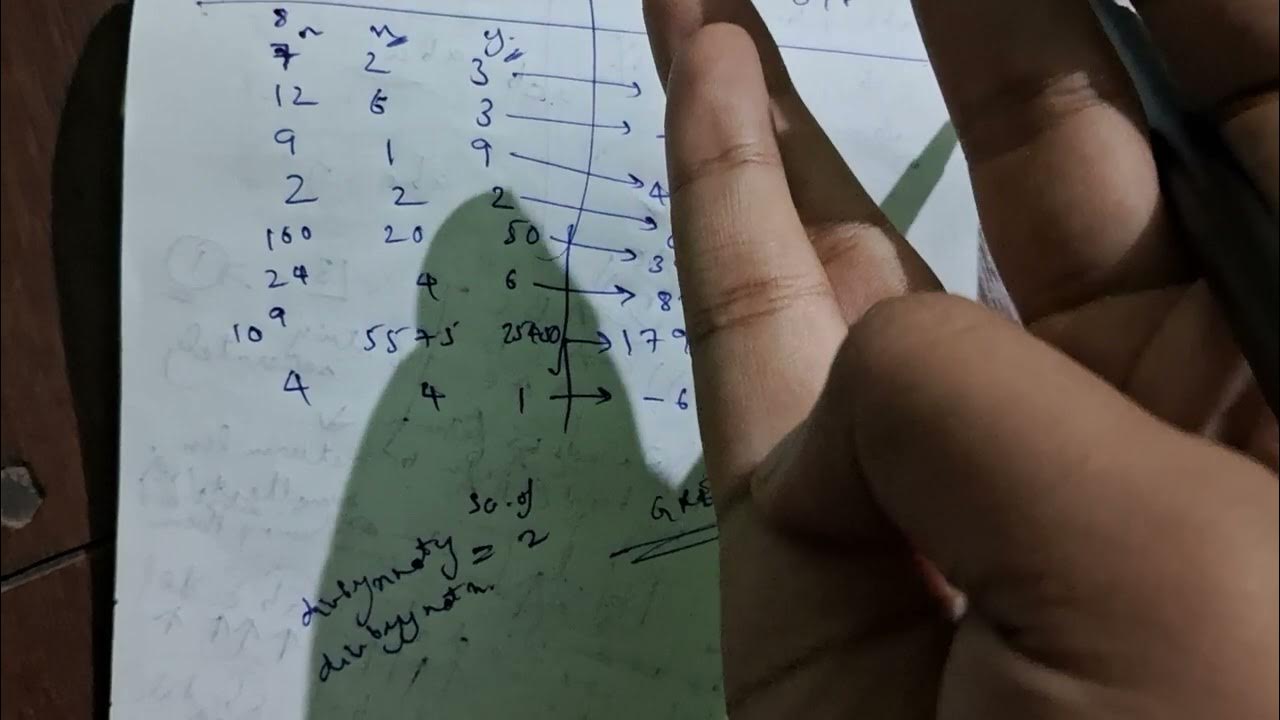 n x y
7 2 3 →
12 6 3 → -
9 1 9 → 4
2 2 2 →
100 20 50 → 3
24 4 6 → 8
10⁹ 5575 25450 → 179
4 4 1 → -6
so. of
GRE
div by x not y = 2
div by y not x